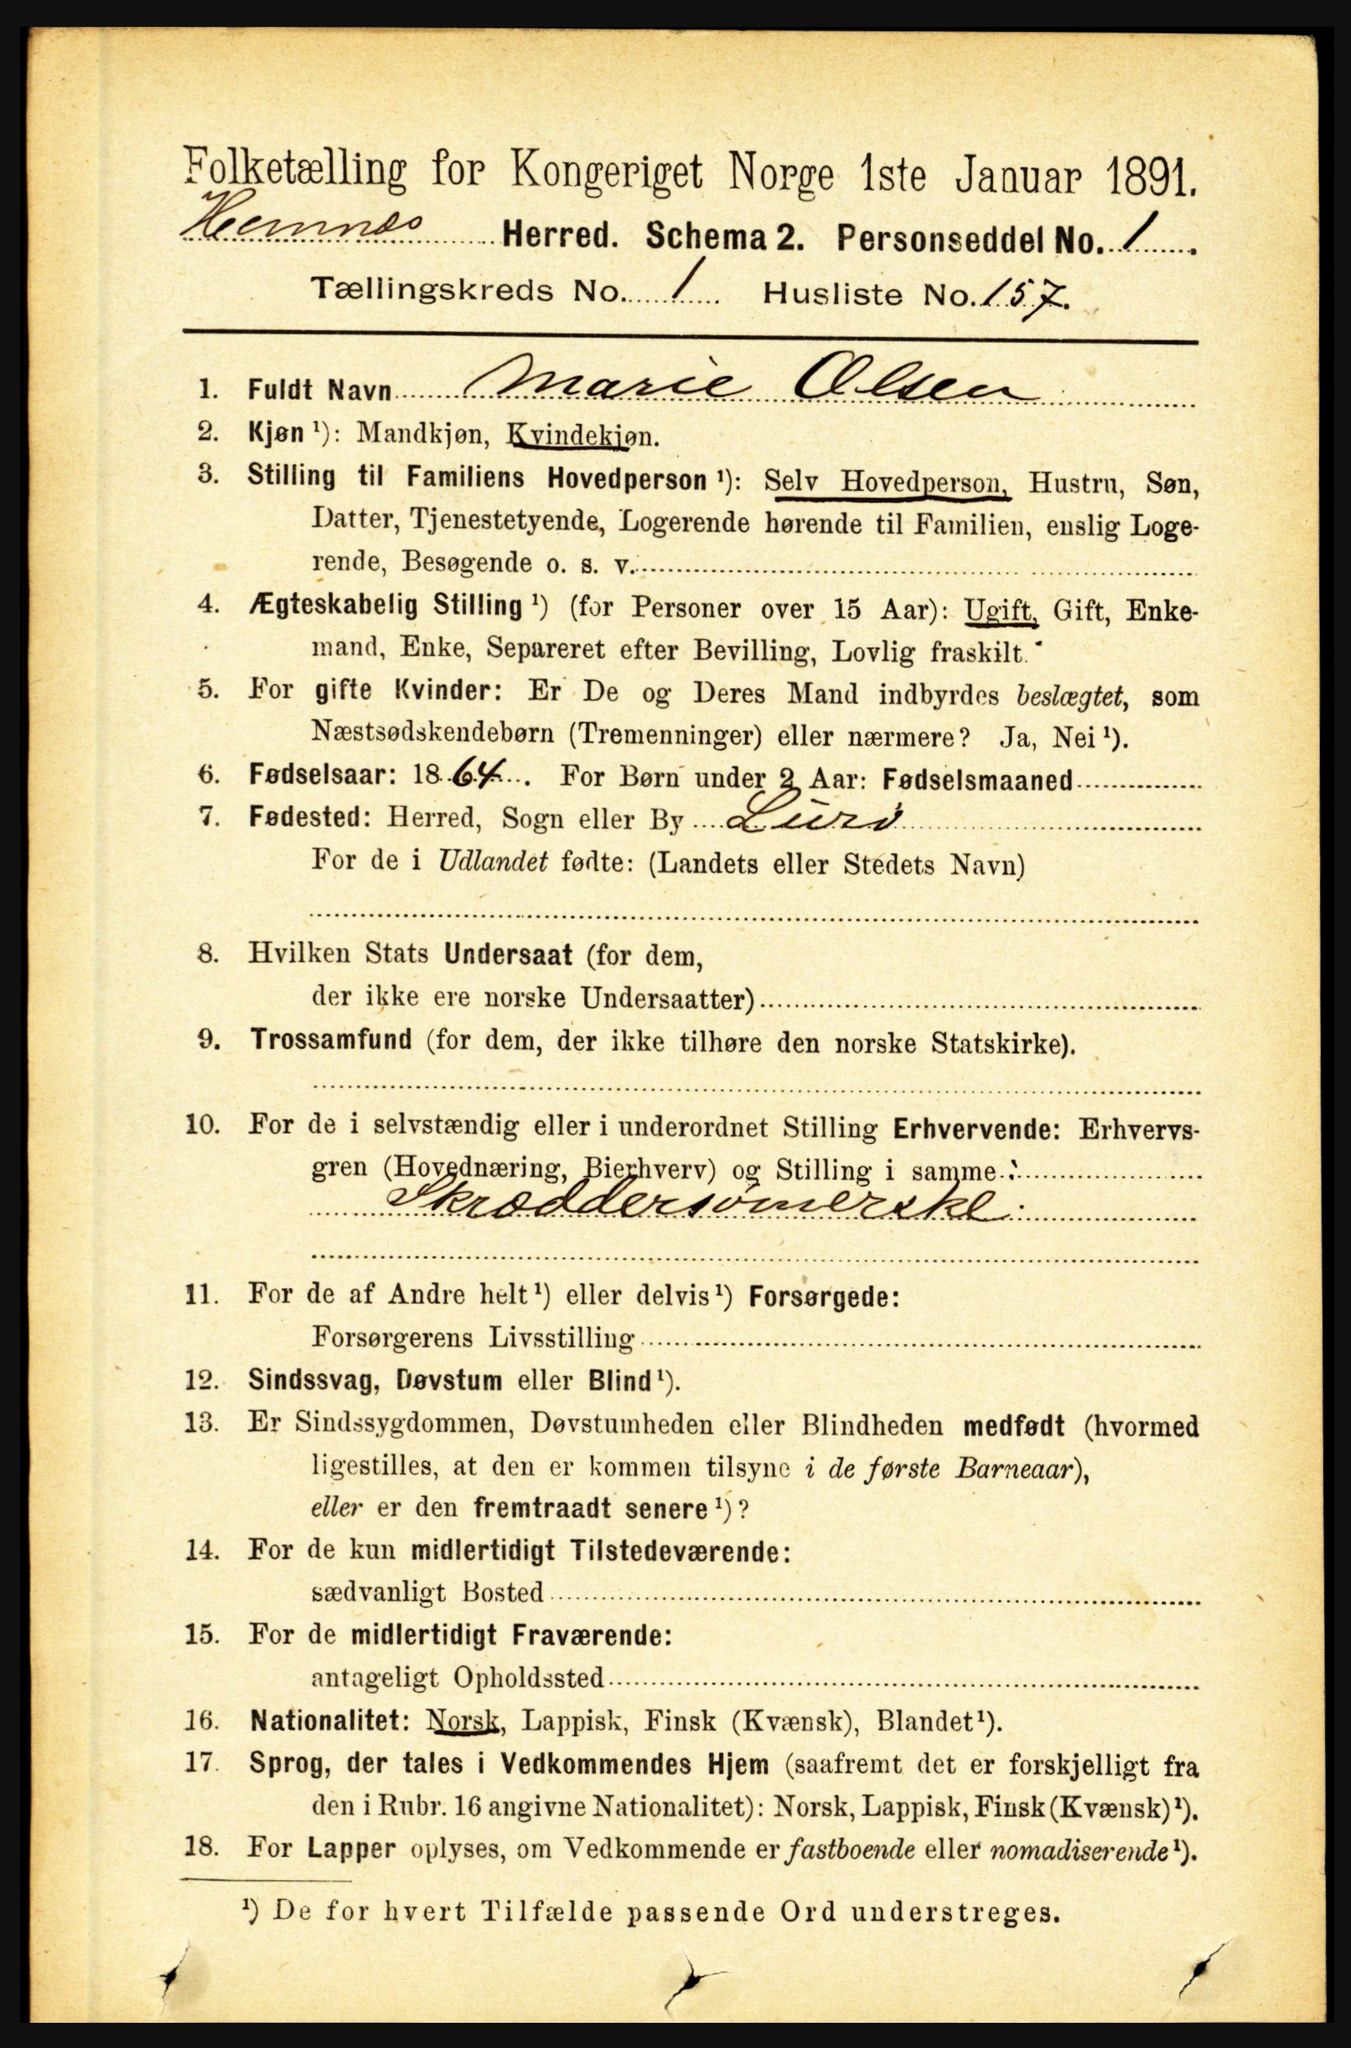 Folketælling for Kongeriget Norge 1ste Januar 1891.
Hemnæs Herred. Schema 2. Personseddel No. 1.
Tællingskreds No. 1 Husliste No. 157.
1. Fuldt Navn Marie Olsen
2. Kjøn ¹): Mandkjøn, Kvindekjøn.
3. Stilling til Familiens Hovedperson ¹): Selv Hovedperson, Hustru, Søn,
Datter, Tjenestetyende, Logerende hørende til Familien, enslig Loge-
rende, Besøgende o. s. v.
4. Ægteskabelig Stilling ¹) (for Personer over 15 Aar): Ugift, Gift, Enke-
mand, Enke, Separeret efter Bevilling, Lovlig fraskilt.
5. For gifte Kvinder: Er De og Deres Mand indbyrdes beslægtet, som
Næstsødskendebørn (Tremenninger) eller nærmere? Ja, Nei ¹).
6. Fødselsaar: 1864. For Børn under 2 Aar: Fødselsmaaned
7. Fødested: Herred, Sogn eller By Lurö
For de i Udlandet fødte: (Landets eller Stedets Navn)
8. Hvilken Stats Undersaat (for dem,
der ikke ere norske Undersaatter)
9. Trossamfund (for dem, der ikke tilhøre den norske Statskirke).
10. For de i selvstændig eller i underordnet Stilling Erhvervende: Erhvervs-
gren (Hovednæring, Bierhverv) og Stilling i samme:
Skræddersömerske
11. For de af Andre helt ¹) eller delvis ¹) Forsørgede:
Forsørgerens Livsstilling
12. Sindssvag, Døvstum eller Blind ¹).
13. Er Sindssygdommen, Døvstumheden eller Blindheden medfødt (hvormed
ligestilles, at den er kommen tilsyne i de første Barneaar),
eller er den fremtraadt senere ¹)?
14. For de kun midlertidigt Tilstedeværende:
sædvanligt Bosted
15. For de midlertidigt Fraværende:
antageligt Opholdssted
16. Nationalitet: Norsk, Lappisk, Finsk (Kvænsk), Blandet ¹).
17. Sprog, der tales i Vedkommendes Hjem (saafremt det er forskjelligt fra
den i Rubr. 16 angivne Nationalitet): Norsk, Lappisk, Finsk (Kvænsk) ¹).
18. For Lapper oplyses, om Vedkommende er fastboende eller nomadiserende ¹).
¹) De for hvert Tilfælde passende Ord understreges.